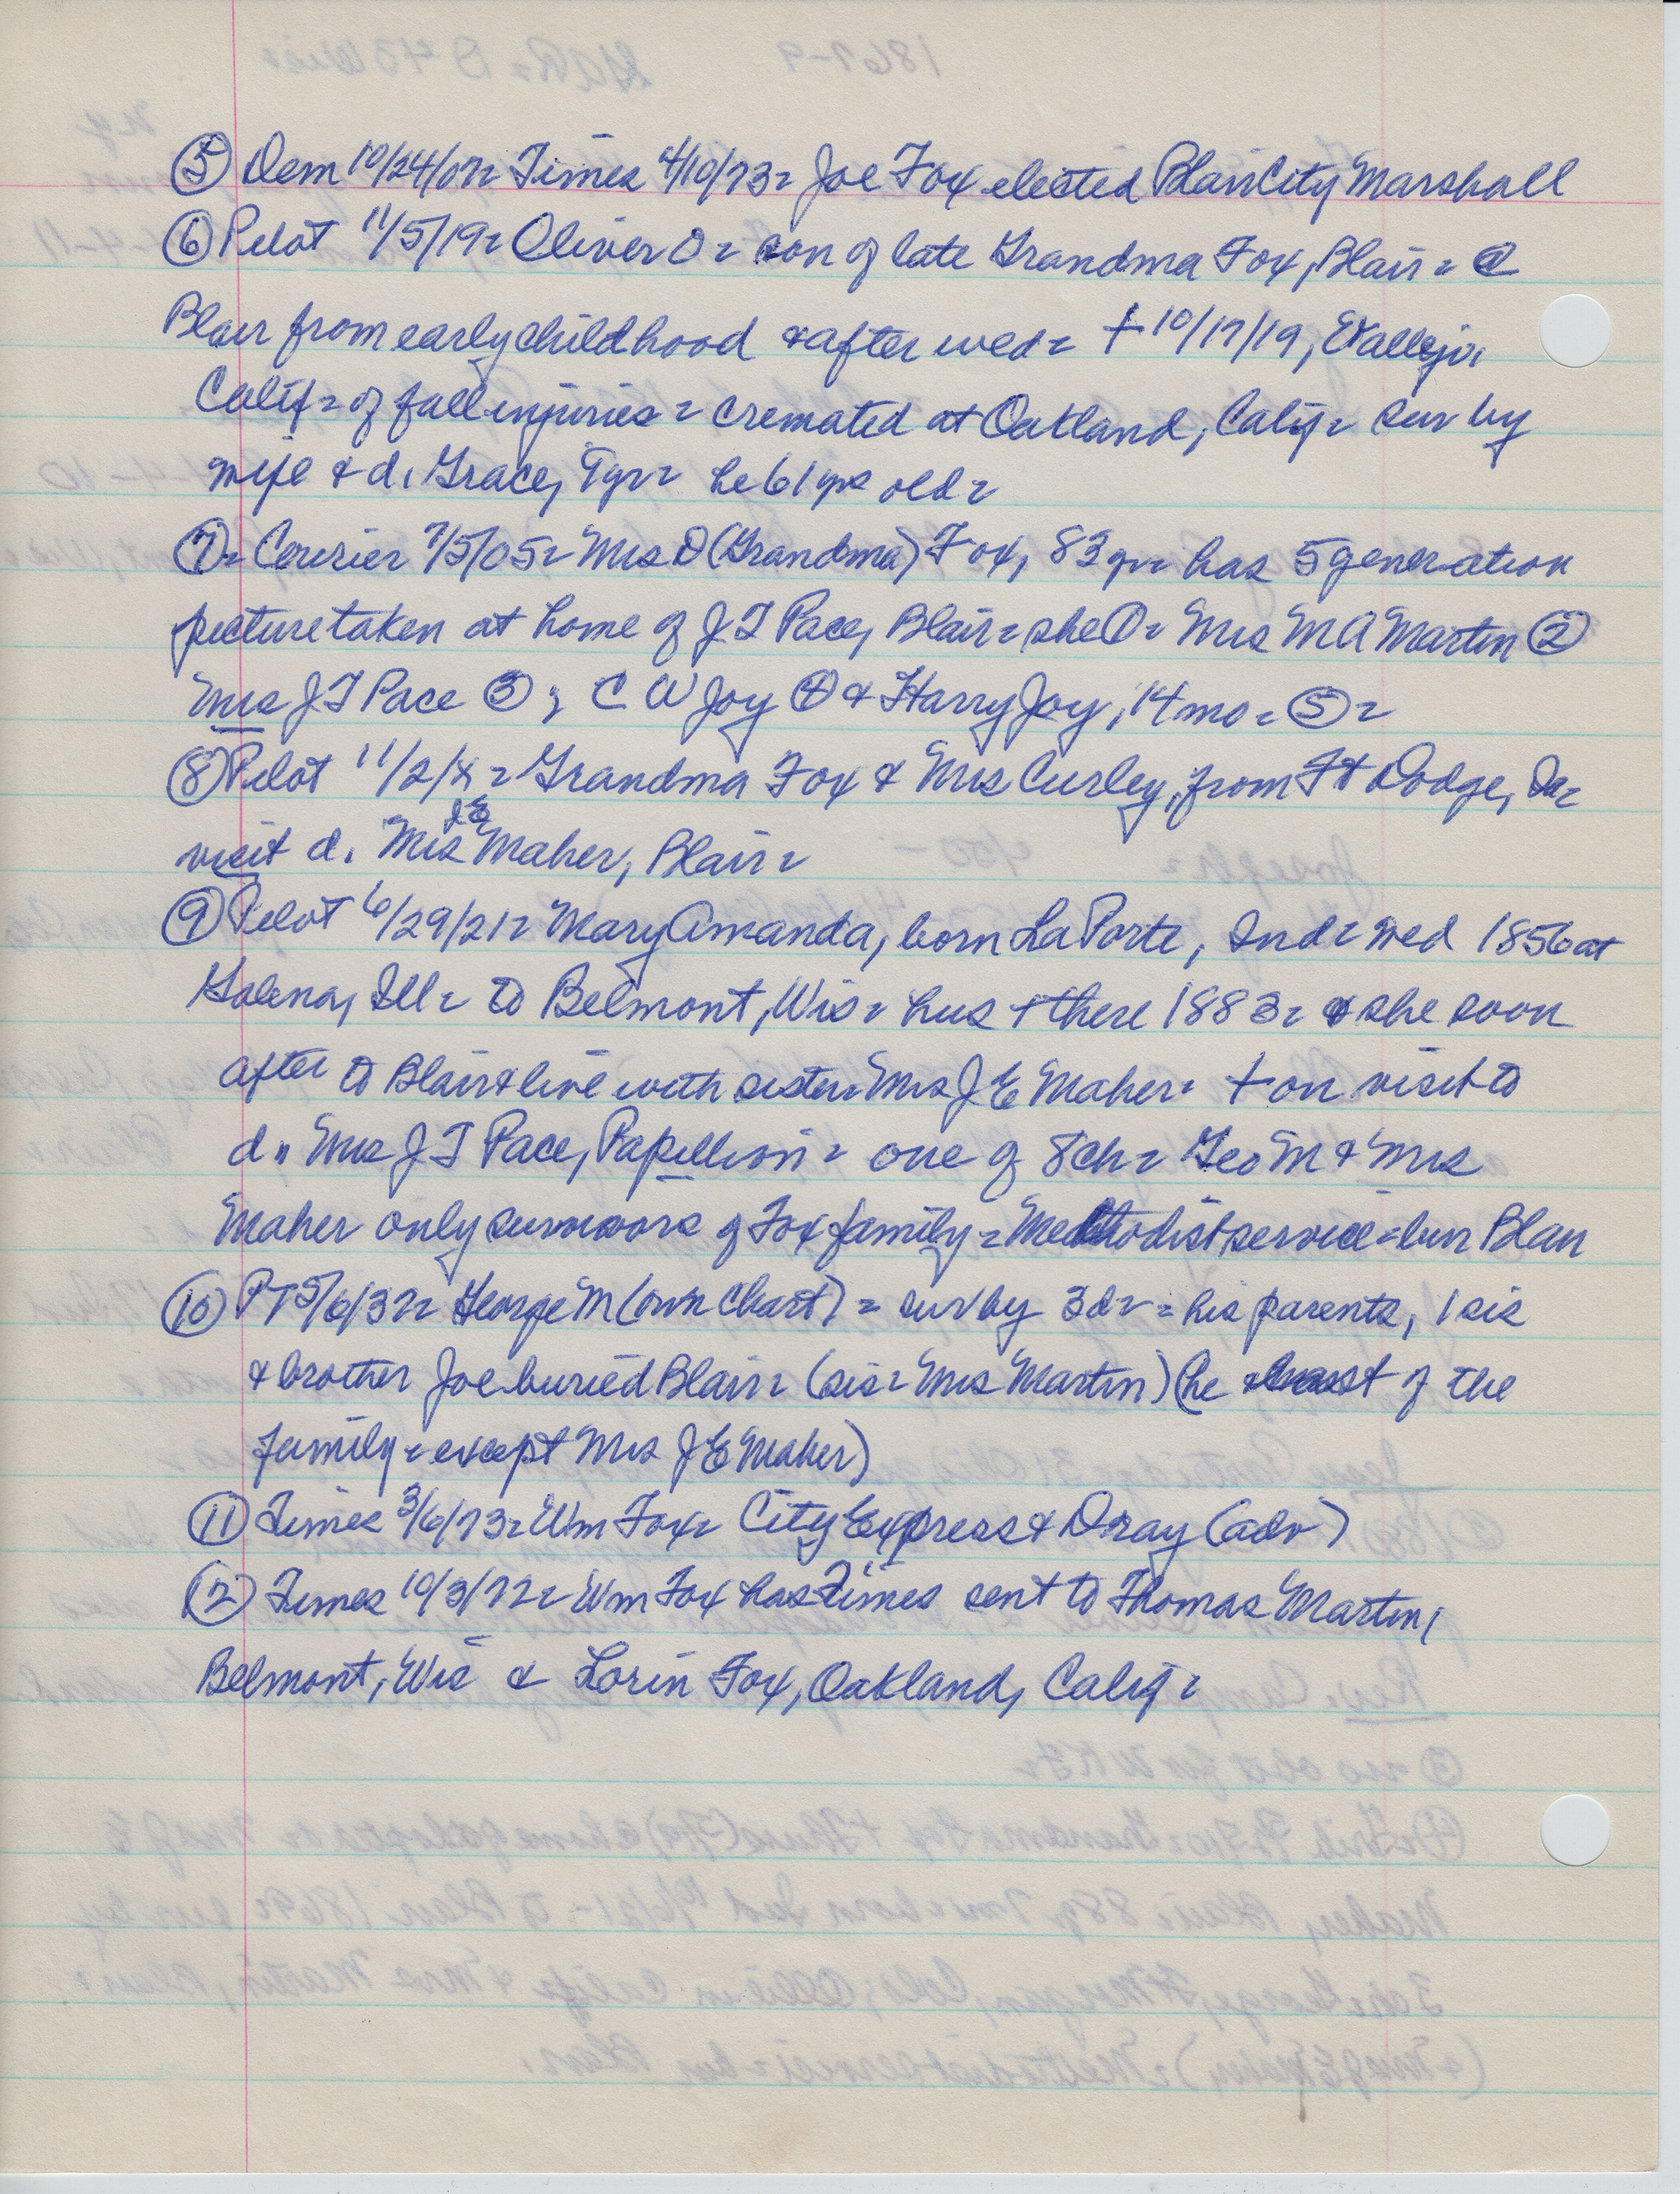 ⑤ Dem 10/24/07= Times 4/10/73= Joe Fox elected Blair City Marshall
⑥ Pilot 11/5/19= Oliver O= son of late Grandma Fox, Blair= @
Blair from early childhood & after wed= + 10/17/19, Vallejo,
Calif= of fall injuries= cremated at Oakland, Calif= sur by
wife & d. Grace, 7yr= he 61 yrs old=
⑦= Courier 7/5/05= Mrs D (Grandma) Fox, 83 yr= has 5 generation
picture taken at home of J T Pace, Blair= she ①= Mrs M A Martin ②
Mrs J T Pace ③; C W Joy ④ & Harry Joy, 14 mo= ⑤=
⑧ Pilot 11/2/x= Grandma Fox & Mrs Curley, from Ft Dodge, Ia=
visit d. Mrs J E Maher, Blair=
⑨ Pilot 6/29/21= Mary Amanda, born La Porte, Ind= wed 1856 at
Galena, Ill= to Belmont, Wis= hus + there 1883= & she soon
after to Blair & live with sister= Mrs J E Maher= + on visit to
d= Mrs J T Pace, Papillion= one of 8 ch= Geo M & Mrs
Maher only survivors of Fox family= Methodist service= bur Blair
⑩ PT 5/6/37= George M (own chart)= sur by 3 d= = his parents, 1 sis
& brother Joe buried Blair= (sis= Mrs Martin) (he last of the
family= except Mrs J E Maher)
⑪ Times 3/6/73= Wm Fox= City Express & Dray (adv)
⑫ Times 10/3/72= Wm Fox has Times sent to Thomas Martin,
Belmont, Wis & Lorin Fox, Oakland, Calif=